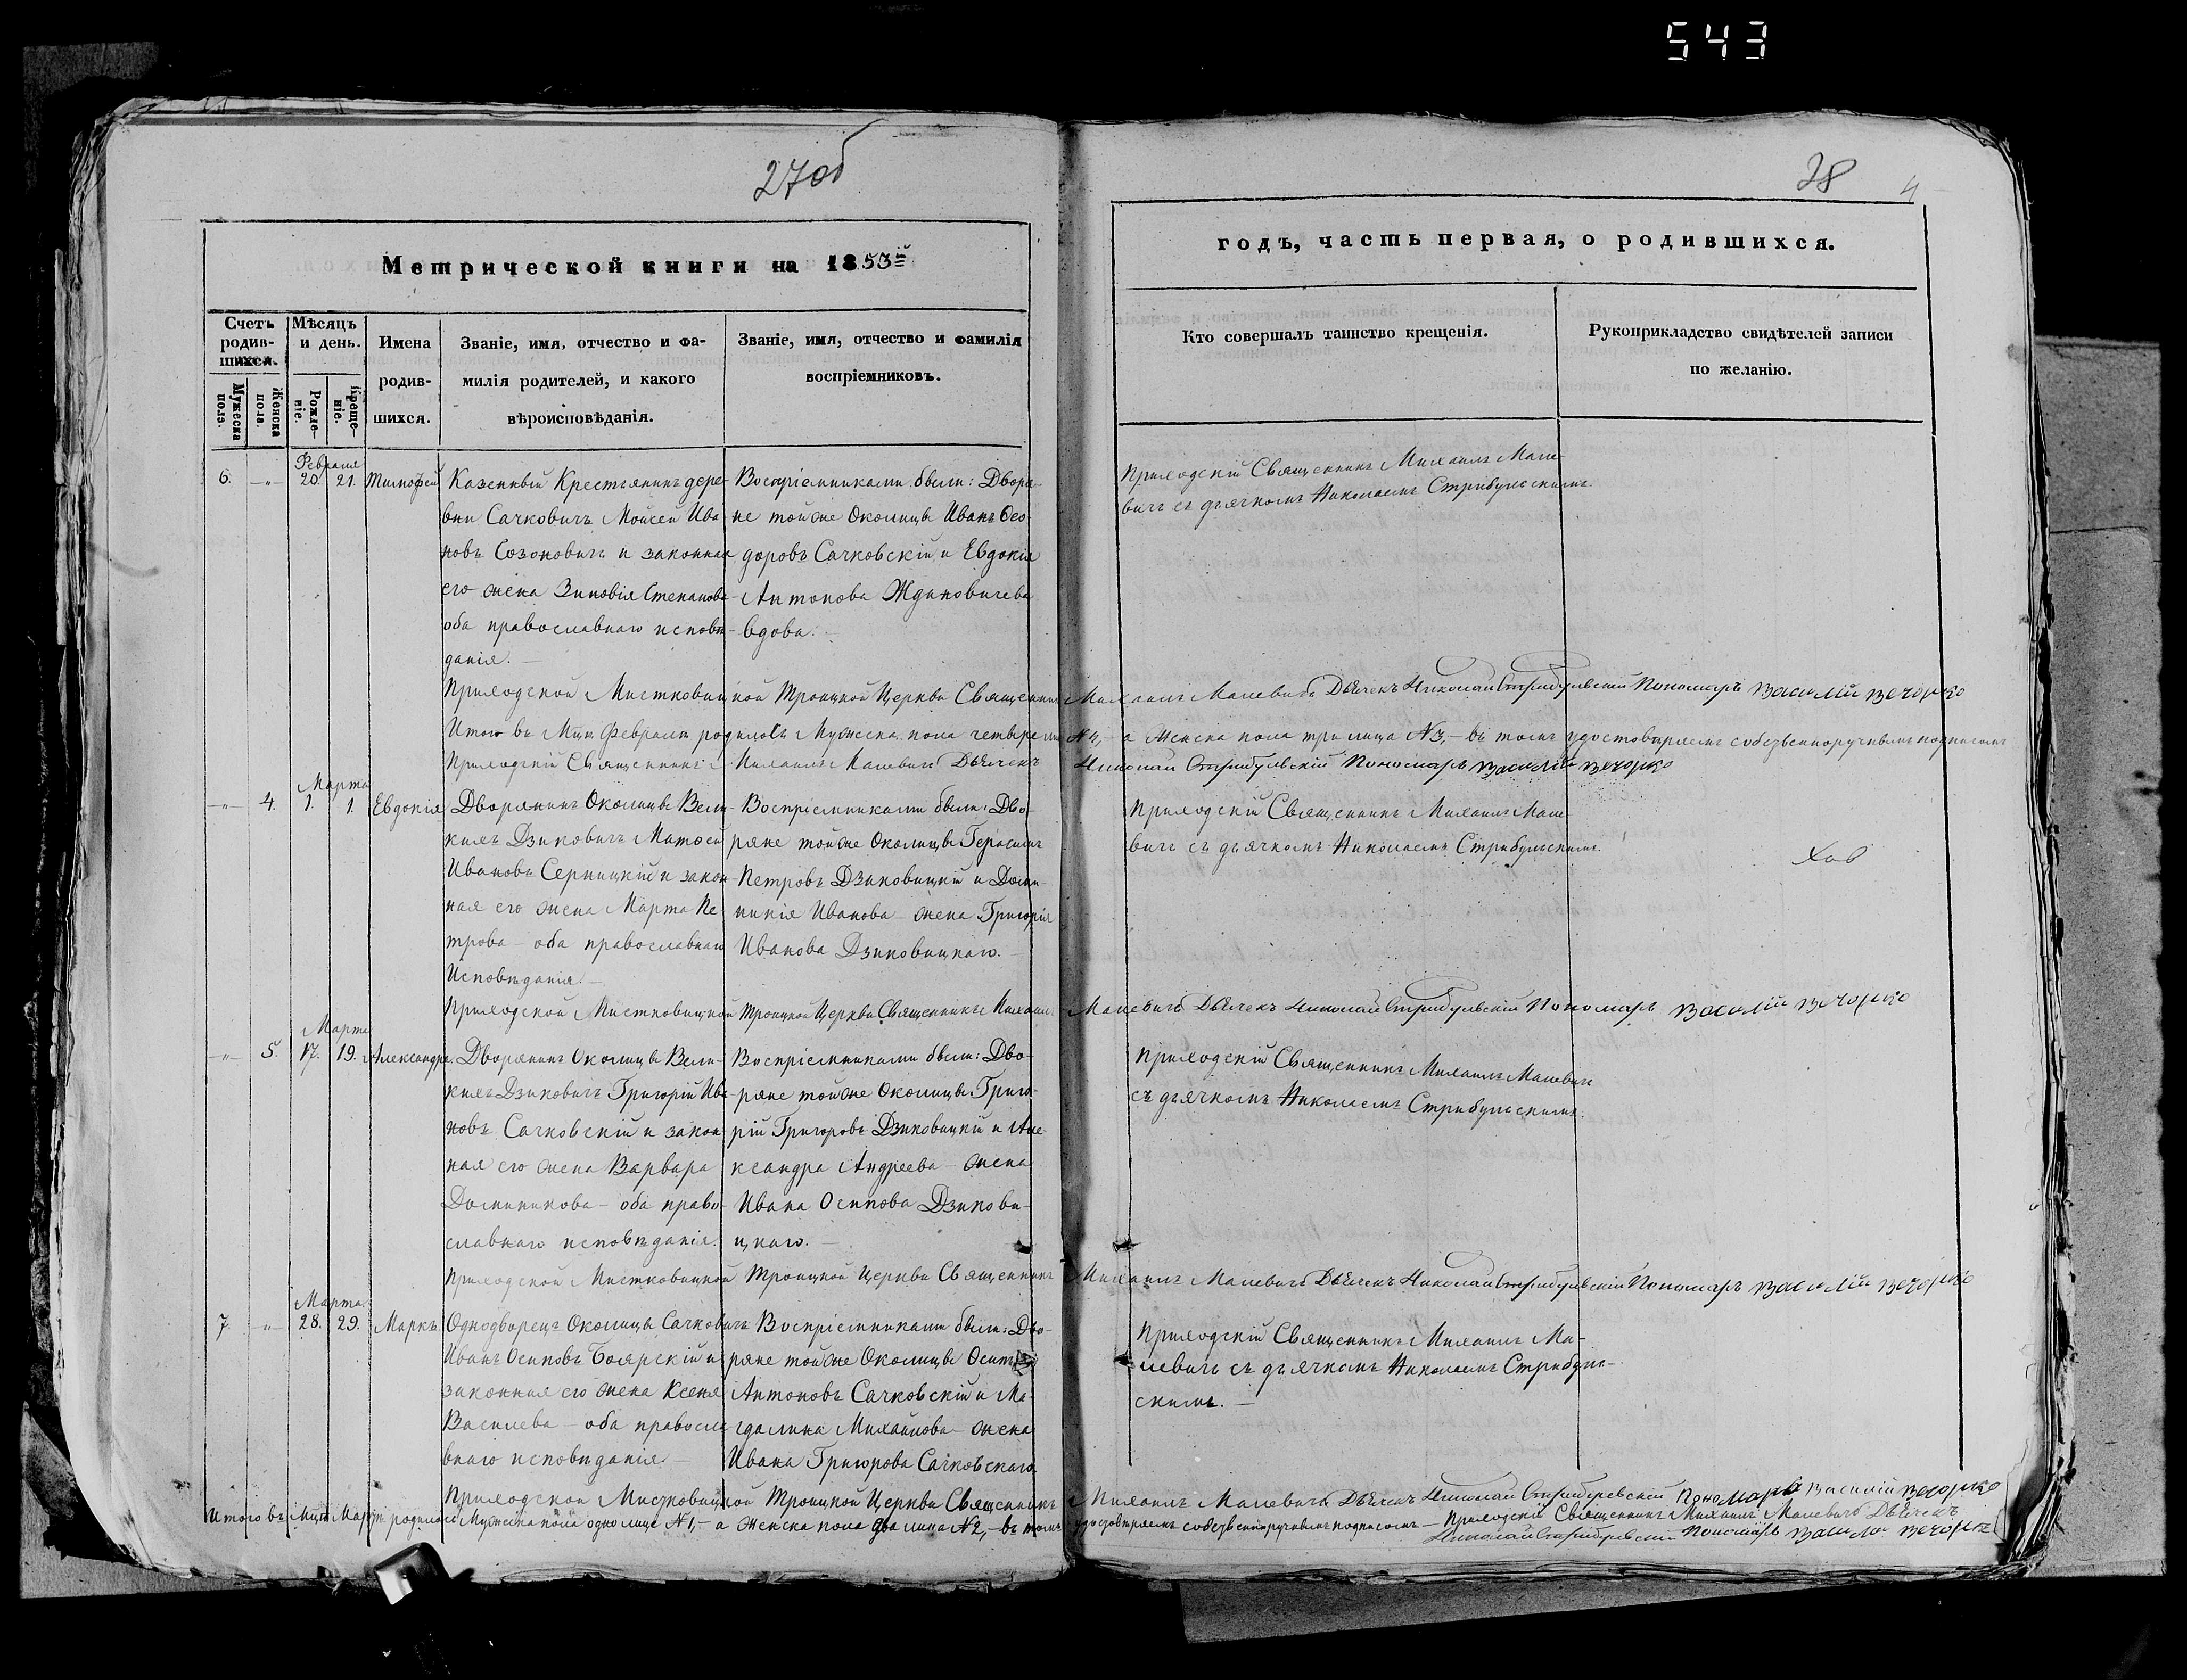 543
27об
28 4
Метрической книги на 1853й
годъ, часть первая, о родившихся.
Счетъ родив-шихся.
Мужеска пола.
Женска пола.
Мѣсяцъ и день.
Рожде-ніе.
Креще-ніе.
Имена
родив-
шихся.
Званіе, имя, отчество и фа-
милія родителей, и какого
вѣроисповѣданія.
Званіе, имя, отчество и фамилія
воспріемниковъ.
Кто совершалъ таинство крещенія.
Рукоприкладство свидѣтелей записи
по желанію.
Февраля
6. — „ — 20. 21. Тимофей
Казенный Крестьянинъ дере-
вни Сачковичъ Мойсей Ива-
новъ Созоновичъ и законная
его жена Зиновія Степанова
оба православнаго исповѣ-
данія. —
Воспріемниками были: Дворя-
не той же Околицы Иванъ Ѳео-
доровъ Сачковскій и Евдокія
Антонова Ждановичева
вдова. —
Приходскій Священникъ Михаилъ Мале-
вичъ съ дьячкомъ Николаемъ Стрибульскимъ.
Приходской Мистковицкой Троицкой Церкви Священникъ Михаилъ Малевичъ Дьячекъ Николай Стрибульскій Пономарь Василій Вечорко
Итого въ Мцѣ Февралѣ родилось Мужеска пола четыре лица № 4,— а Женска пола три лица № 3,— въ томъ удостовѣряемъ собственноручнымъ подписомъ
Приходскій Священникъ Михаилъ Малевичъ Дьячекъ Николай Стрибульскій Пономарь Василій Вечорко
Марта
— „ — 4. 1. 1. Евдокія
Дворянинъ Околицы Вели-
кихъ Дзиковичъ Матѳей
Ивановъ Серницкій и закон-
ная его жена Марта Пе-
трова — оба православнаго
Исповѣданія. —
Воспріемниками были: Дво-
ряне той же Околицы Герасимъ
Петровъ Дзиковицкій и Доми-
никія Иванова — жена Григорія
Иванова Дзиковицкаго. —
Приходскій Священникъ Михаилъ Мале-
вичъ съ дьячкомъ Николаемъ Стрибульскимъ.
Приходской Мистковицкой Троицкой Церкви Священникъ Михаилъ Малевичъ Дьячекъ Николай Стрибульскій Пономарь Василій Вечорко
Марта
— „ — 5. 17. 19. Александра.
Дворянинъ Околицы Вели-
кихъ Дзиковичъ Григорій Ива-
новъ Сачковскій и закон-
ная его жена Варвара
Доминикова — оба право-
славнаго исповѣданія.
Воспріемниками были: Дво-
ряне той же Околицы Григо-
рій Григоровъ Дзиковицкій и Але-
ксандра Андреева — жена
Ивана Осипова Дзикови-
цкаго. —
Приходскій Священникъ Михаилъ Малевичъ
съ дьячкомъ Николаемъ Стрибульскимъ.
Приходской Мистковицкой Троицкой Церкви Священникъ Михаилъ Малевичъ Дьячекъ Николай Стрибульскій Пономарь Василій Вечорко
Марта
7. — „ — 28. 29. Маркъ
Однодворецъ Околицы Сачковичъ
Иванъ Осиповъ Боярскій и
законная его жена Ксеня
Василева — оба правосла-
внаго исповѣданія —
Воспріемниками были: Дво-
ряне той же Околицы Осипъ
Антоновъ Сачковскій и Ма-
гдалина Михайлова — жена
Ивана Григорова Сачковскаго
Приходскій Священникъ Михаилъ Ма-
левичъ съ дьячкомъ Николаемъ Стрибуль-
скимъ. —
Приходской Мистковицкой Троицкой Церкви Священникъ Михаилъ Малевичъ Дьячекъ Николай Стрибульскій Пономарь Василій Вечорко
Итого въ Мцѣ Мартѣ родилось Мужеска пола одно лице № 1,— а Женска пола два лица № 2,— въ томъ удостовѣряемъ собственноручнымъ подписомъ — Приходскій Священникъ Михаилъ Малевичъ Дьячекъ
Николай Стрибульскій Пономарь Василій Вечорко